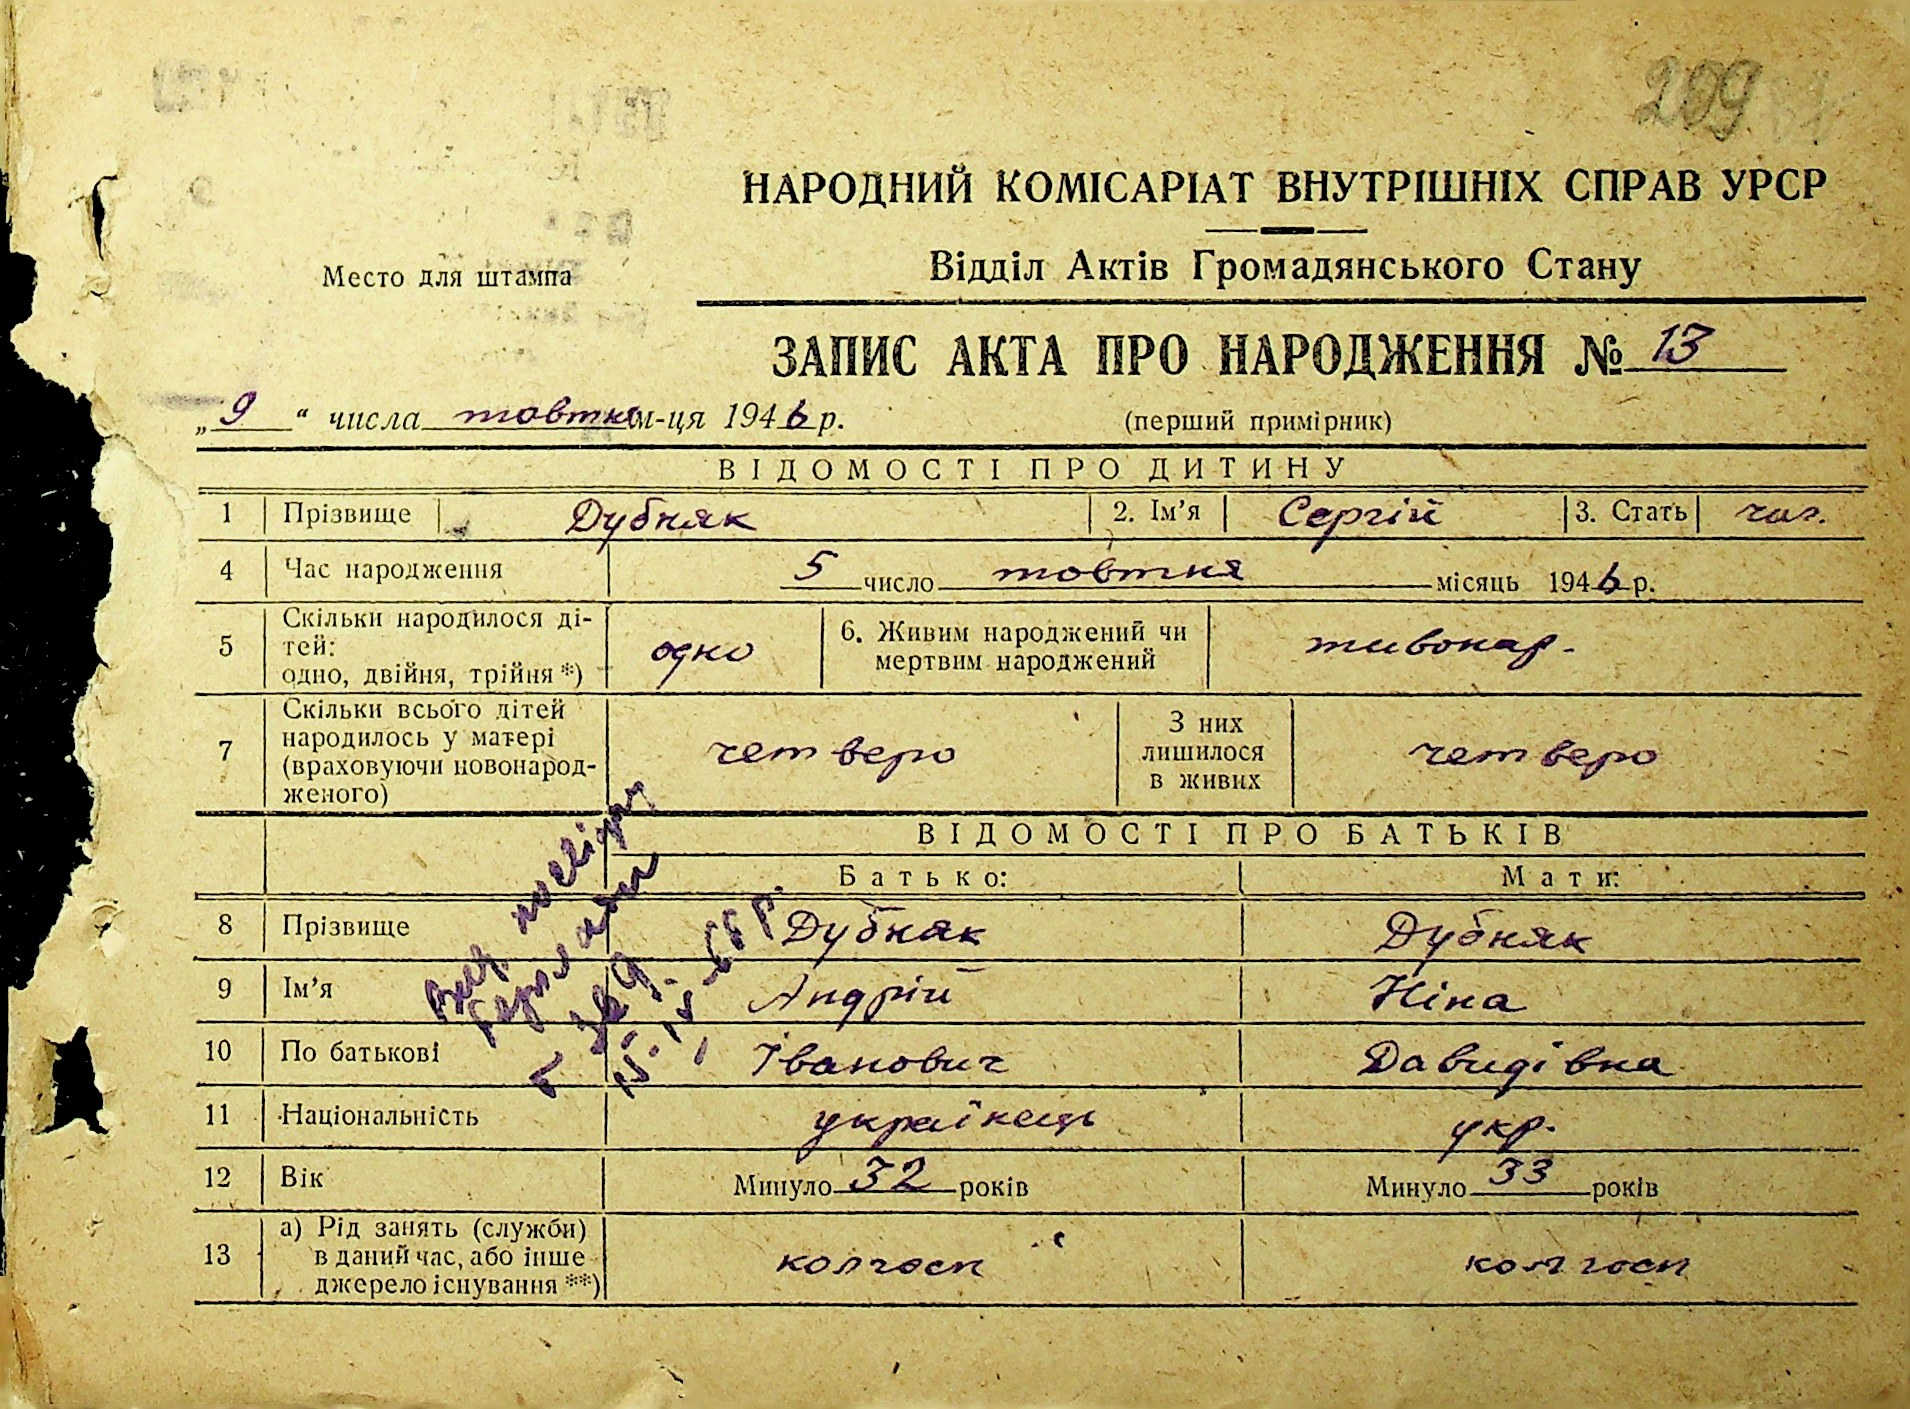 209
НАРОДНИЙ КОМІСАРІАТ ВНУТРІШНІХ СПРАВ УРСР
Место для штампа
Відділ Актів Громадянського Стану
ЗАПИС АКТА ПРО НАРОДЖЕННЯ № 13
„ 9 “ числа жовтня м-ця 1946 р. (перший примірник)
ВІДОМОСТІ ПРО ДИТИНУ
1 Прізвище Дубняк 2. Ім’я Сергій 3. Стать чол.
4 Час народження 5 число жовтня місяць 1946 р.
5 Скільки народилося ді-
тей:
одно, двійня, трійня *) одно 6. Живим народжений чи
мертвим народжений живонар.
7 Скільки всього дітей
народилось у матері
(враховуючи новонарод-
женого) четверо З них
лишилося
в живих четверо
ВІДОМОСТІ ПРО БАТЬКІВ
Батько: Мати:
8 Прізвище Дубняк Дубняк
9 Ім’я Андрій Ніна
10 По батькові Іванович Давидівна
11 Національність українець укр.
12 Вік Минуло 32 років Минуло 33 років
13 а) Рід занять (служби)
в даний час, або інше
джерело існування **) колгосп колгосп